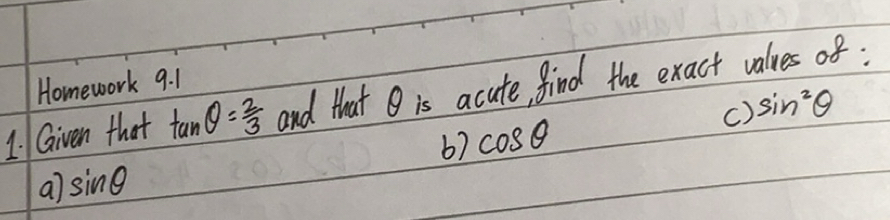 Homework 9.1
1. Given that tanθ = 2/3 and that θ is acute, find the exact values of :
a) sinθ b) cosθ c) sin²θ